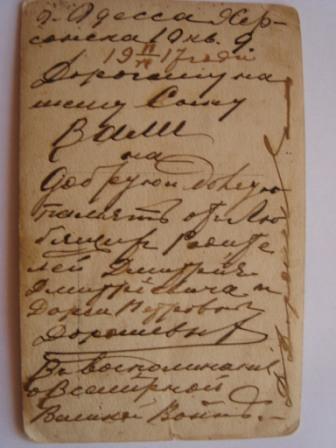 г. Одесса Хер-
сонска 10 кв. 9.
19 IV/VI 17 года
Дорогому на
шему Сыну
Вани
на
добрую долгую
память от Лю
бящих Родите
лей Дмитрия
Дмитриевича и
Дарьи Петровны
Дорошевы
Въ воспоминание
о Всемирной
Великой Войнѣ.